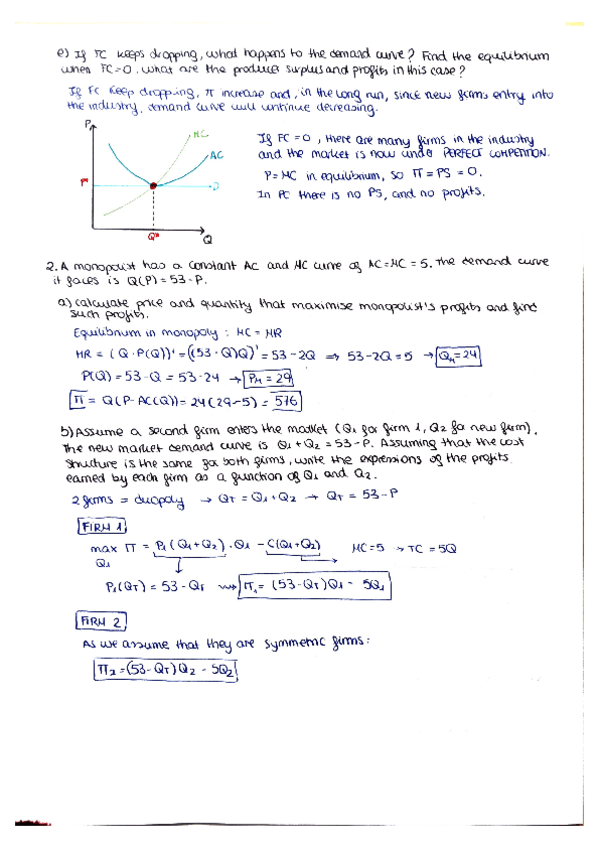 e) If FC keeps dropping, what happens to the demand curve? Find the equilibrium
when FC=0. what are the producer surplus and profits in this case?
If FC keep dropping, π increase and, in the long run, since new firms entry into
the industry, demand curve will continue decreasing.
P
MC
AC
P*
D
Q*
Q
If FC=0, there are many firms in the industry
and the market is now under PERFECT COMPETITION.
P=MC in equilibrium, so Π = PS = 0.
In PC there is no PS, and no profits.
2. A monopolist has a constant AC and MC curve of AC=MC=5. The demand curve
it faces is Q(P)=53-P.
a) Calculate price and quantity that maximise monopolist's profits and find
such profits.
Equilibrium in monopoly: MC = MR
MR = (Q·P(Q))' = ((53-Q)Q)' = 53-2Q ⇒ 53-2Q=5 → QM=24
P(Q) = 53-Q = 53-24 → PM = 29
Π = Q(P-AC(Q)) = 24(29-5) = 576
b) Assume a second firm enters the market (Q1 for firm 1, Q2 for new firm).
The new market demand curve is Q1+Q2 = 53-P. Assuming that the cost
structure is the same for both firms, write the expressions of the profits
earned by each firm as a function of Q1 and Q2.
2 firms = duopoly → QT = Q1+Q2 → QT = 53-P
FIRM 1
max Π = P1(Q1+Q2)·Q1 - C(Q1+Q2) MC=5 → TC = 5Q
Q1
P1(QT) = 53-QT ⇝ Π1 = (53-QT)Q1 - 5Q1
FIRM 2
As we assume that they are symmetric firms:
Π2=(53-QT)Q2 - 5Q2